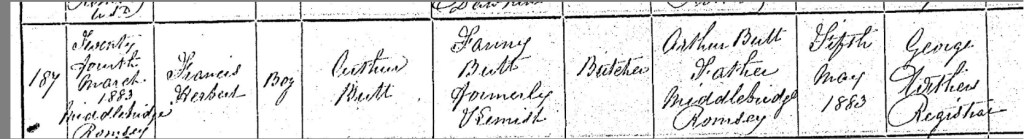 187
Twenty
fourth
March
1883
Middlebridge
Romsey
Francis
Herbert
Boy
Arthur
Butt
Fanny
Butt
formerly
Butcher
Arthur Butt
Father
Middlebridge
Romsey
Fifth
May
1883
George
Registrar